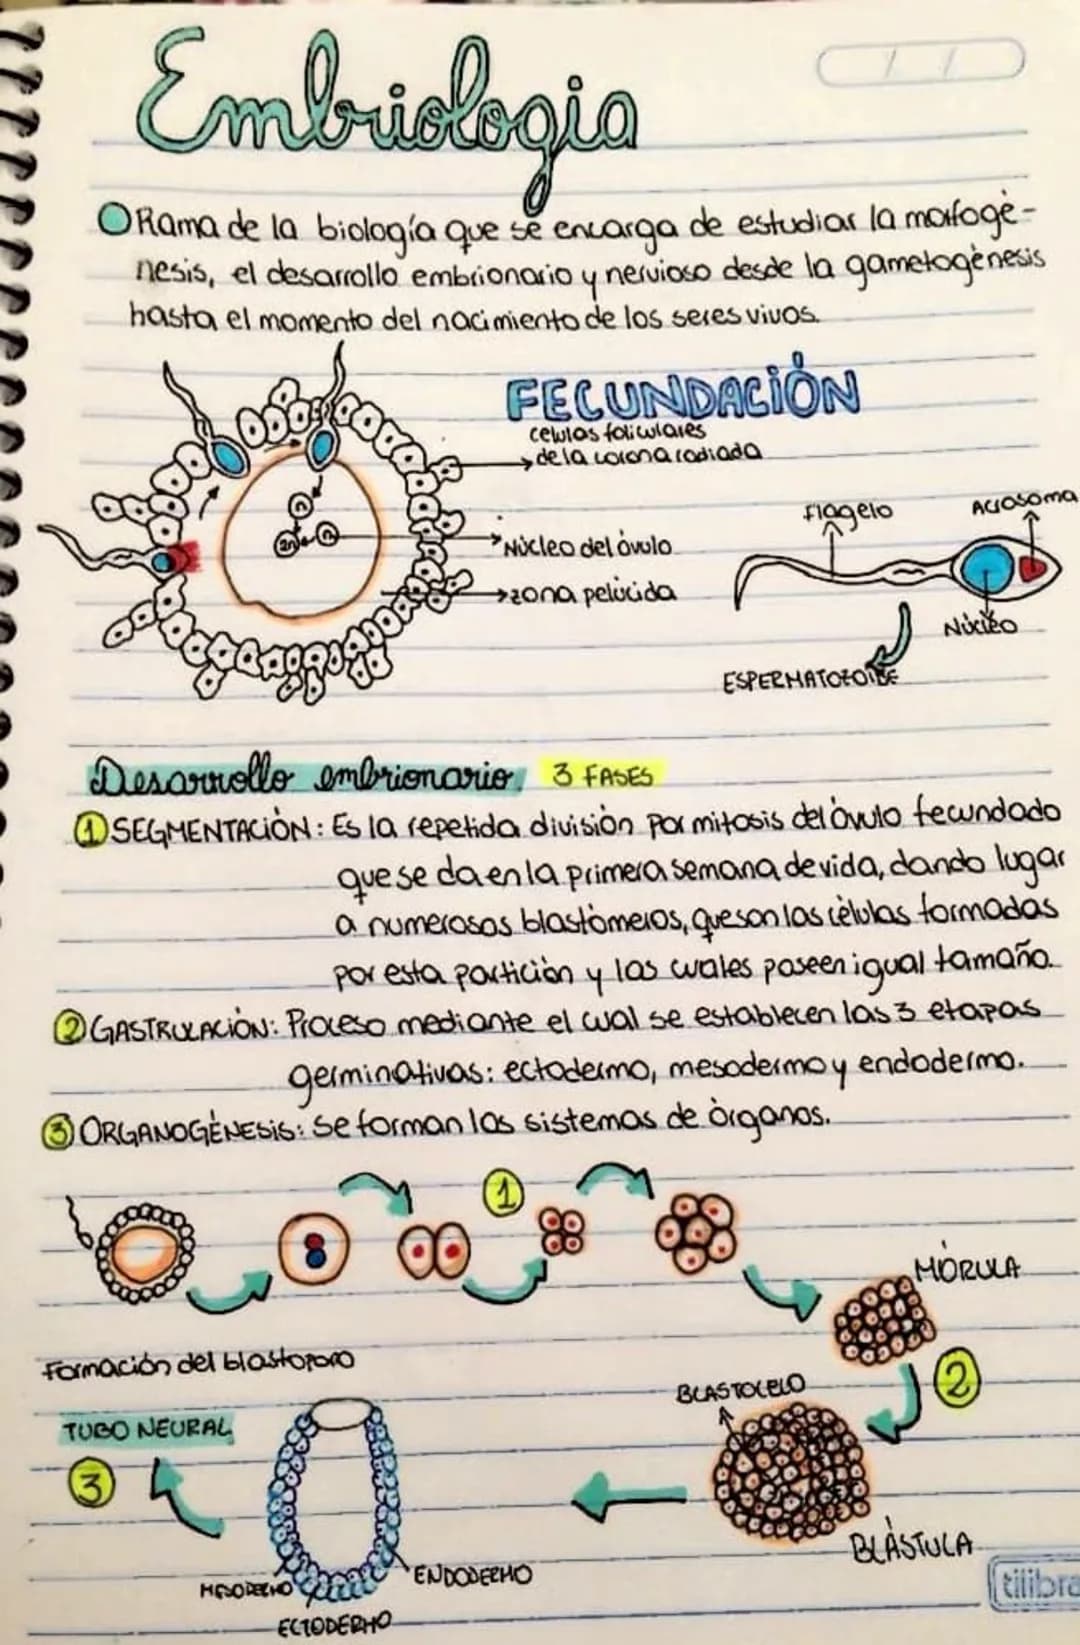 Embriologia
Rama de la biología que se encarga de estudiar la morfogé-
nesis, el desarrollo embrionario y nervioso desde la gametogénesis
hasta el momento del nacimiento de los seres vivos.
FECUNDACIÓN
celulas foliculares
de la corona radiada
Núcleo del óvulo
zona pelúcida
n
2n
n
Flagelo
Acrosoma
Núcleo
ESPERMATOZOIDE
Desarrollo embrionario 3 FASES
1 SEGMENTACIÓN: Es la repetida división por mitosis del óvulo fecundado
que se da en la primera semana de vida, dando lugar
a numerosos blastómeros, que son las células formadas
por esta partición y las cuales poseen igual tamaño.
2 GASTRULACIÓN: Proceso mediante el cual se establecen las 3 etapas
germinativas: ectodermo, mesodermo y endodermo.
3 ORGANOGÉNESIS: Se forman los sistemas de órganos.
1
MÓRULA
2
Formación del blastoporo
BLASTOCELO
TUBO NEURAL
3
BLÁSTULA
MESODERMO
ENDODERMO
ECTODERMO
tilibra